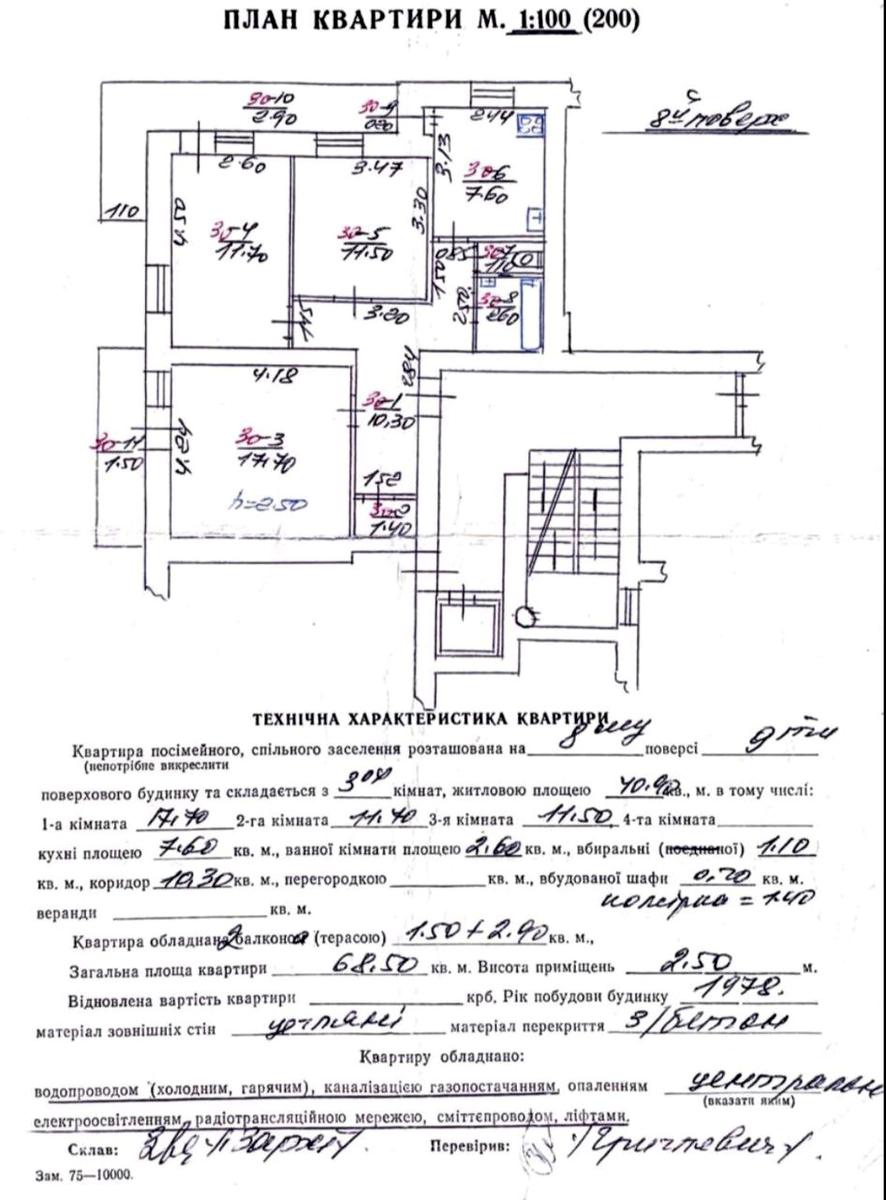 ПЛАН КВАРТИРИ М. 1:100 (200)
8й поверх
30-10
2.90
30-9
0.20
2.44
3.13
30-6
7.60
2.60
3.47
110
4.50
30-4
11.70
30-5
11.50
3.30
0.85
30-7
1.10
1.50
2.50
30-8
2.60
3.20
1.45
4.18
2.84
30-1
10,30
30-11
1.50
4.24
30-3
17.70
h=2.50
1.52
30-2
1.40
ТЕХНІЧНА ХАРАКТЕРИСТИКА КВАРТИРИ
Квартира посімейного, спільного заселення розташована на 8му поверсі 9ти
(непотрібне викреслити
поверхового будинку та складається з 3ох кімнат, житловою площею 40.90 кв., м. в тому числі:
1-а кімната 17,70 2-га кімната 11.70 3-я кімната 11.50 4-та кімната
кухні площею 7.60 кв. м., ванної кімнати площею 2.60 кв. м., вбиральні (поєднаної) 1.10
кв. м., коридор 10.30 кв. м., перегородкою кв. м., вбудованої шафи 0,20 кв. м.
веранди кв. м. комірка = 1.40
Квартира обладнана 2 балконом (терасою) 1.50 + 2.90 кв. м.,
Загальна площа квартири 68.50 кв. м. Висота приміщень 2.50 м.
Відновлена вартість квартири крб. Рік побудови будинку 1978.
матеріал зовнішніх стін цегляні матеріал перекриття з/бетон
Квартиру обладнано:
водопроводом (холодним, гарячим), каналізацією газопостачанням, опаленням централь
(вказати яким)
електроосвітленням, радіотрансляційною мережею, сміттєпроводом, ліфтами.
Склав: Перевірив:
Зам. 75—10000.